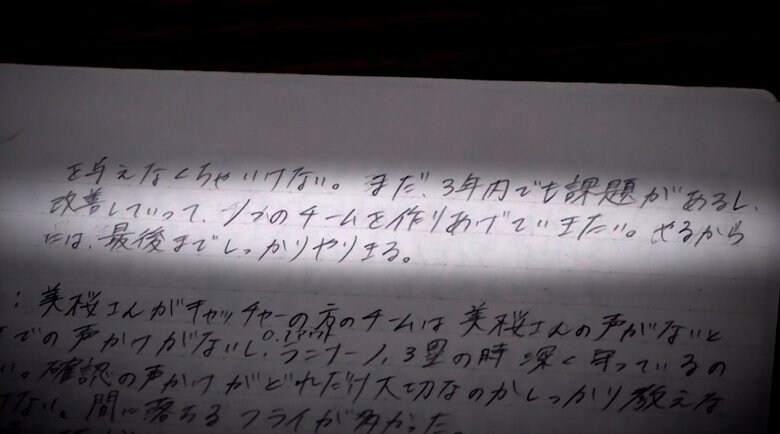 を与えなくちゃいけない。まだ、3年内でも課題があるし、
改善していって、1つのチームを作りあげていきたい。やるから
には、最後までしっかりやりきる。
：美桜さんがキャッチャーの方のチームは美桜さんの声がないと
での声かけがないし、ランナー1、3塁の時深く守っているの
い。確認の声かけがどれだけ大切なのかしっかり教えな
けない。間に落ちるフライが多かった。